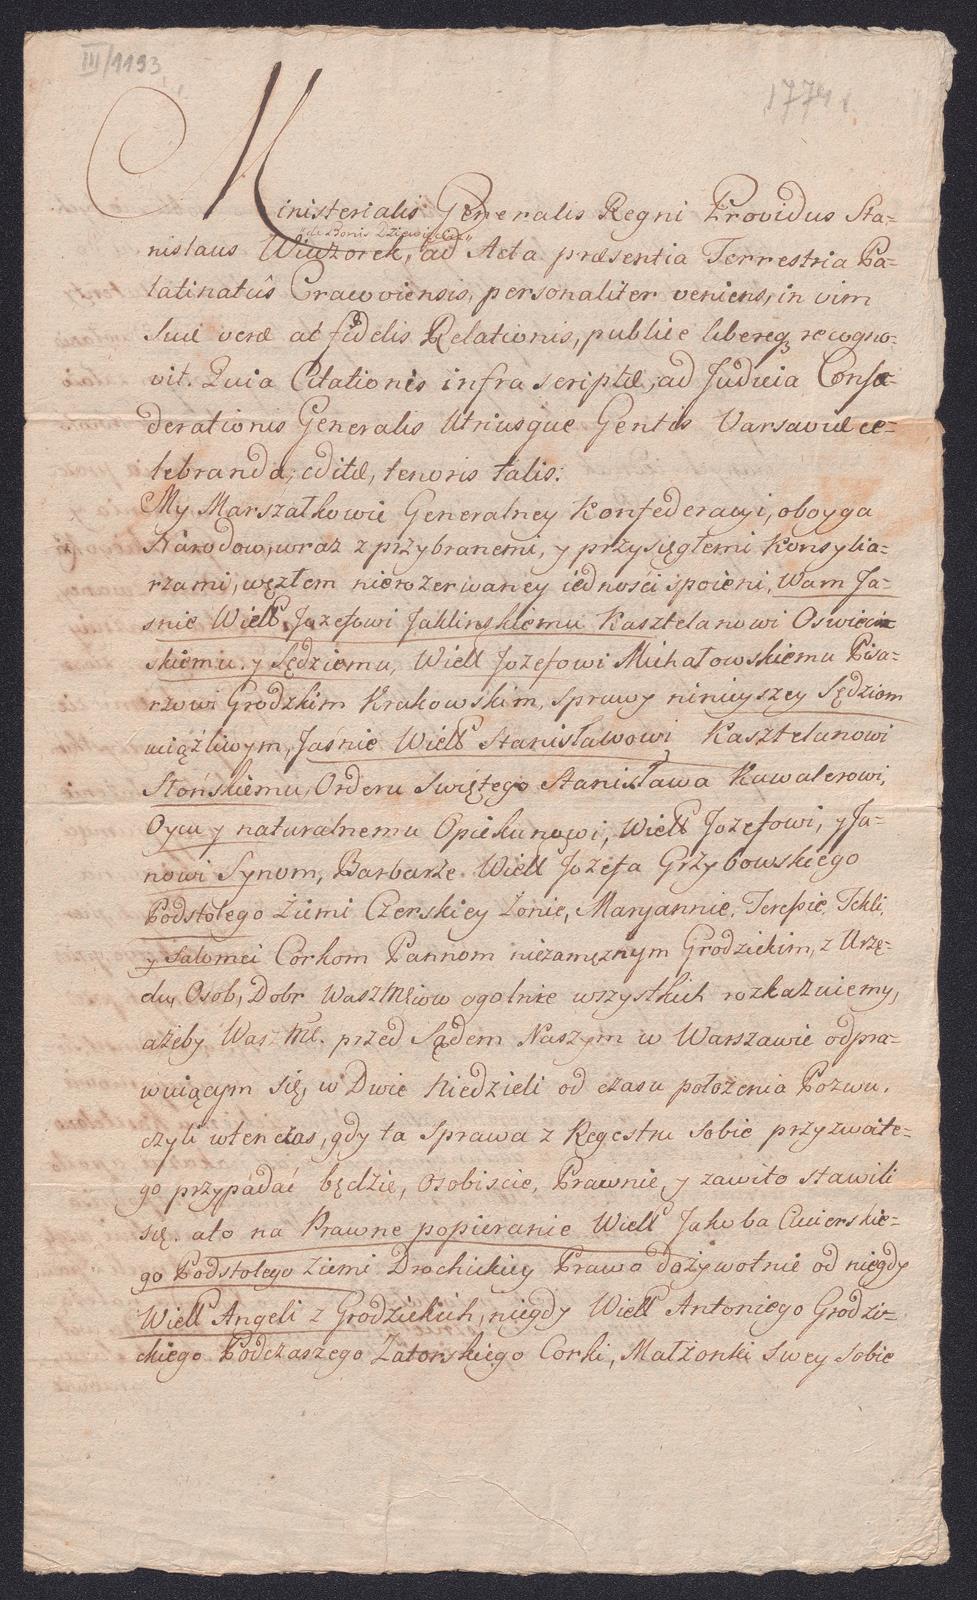 III/1193
1774 r.
Ministerialis Generalis Regni Providus Sta-
de Bonis
nislaus Wieczorek, ad Acta præsentia Terrestria Pa-
latinatûs Cracoviensis, personaliter veniens, in vim
Suæ veræ ac fidelis Relationis, publice libereq3 recogno-
vit. Quia Citationis infra scriptæ, ad Judicia Confæ-
derationis Generalis Utriusque Gentis Varsaviæ ce-
lebranda, editæ, tenoris talis:
My Marszałkowie Generalney Konfederacyi, oboyga
Narodow, wraz z przybranemi, y przysięgłemi Konsylia-
rzami, węzłem nierozerwaney iedności spoieni, Wam Ja-
śnie Wiell Jozefowi Jaklinskiemu Kasztelanowi Oswieci
skiemu y Sędziemu, Wiell Jozefowi Michałowskiemu Pisa-
rzowi Grodzkim Krakowskim, Sprawy ninieyszey Sędziom
uciążliwym, Jaśnie Wiell Stanisławowi Kasztelanowi
Słońskiemu, Orderu Swiętego Stanisława Kawalerowi,
Oycu y naturalnemu Opiekunowi, Wiell Jozefowi, y Ja-
nowi Synom, Barbarze Wiell Jozefa Grzybowskiego
Podstolego Ziemi Czerskiey Żonie, Maryannie, Teressie, Tekli,
y Salomei Corkom Pannom niezamęznym Grodzickim, z Urzę-
du, Osob, Dobr WaszMciow ogolnie wszystkich rozkazuiemy,
ażeby Wasz Mć. przed Sądem Naszym w Warszawie odpra-
wuiącym się, w Dwie Niedzieli od czasu położenia Pozwu,
czyli wtenczas, gdy ta Sprawa z Regestru Sobie przyzwoite-
go przypadać będzie, Osobiscie, Prawnie, y zawito stawili
się. a to na Prawne popieranie Wiell Jakoba Cieierskie-
go Podstolego Ziemi Drohickiey Prawo dożywotnie od niegdy
Wiell Angeli z Grodzickich, niegdy Wiell Antoniego Grodzi-
ckiego Podczaszego Zatorskiego Corki, Małżonki Swey Sobie